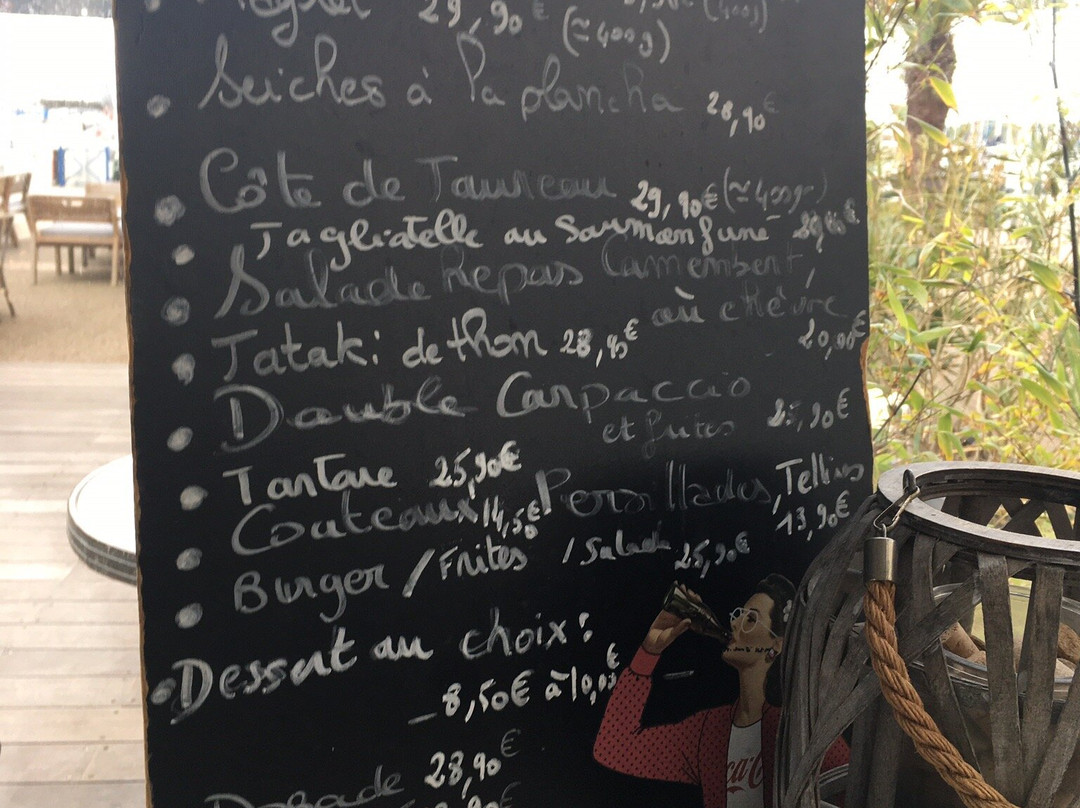 29,90€ (≃400g)
Seiches à la plancha 28,90€
Côte de Taureau 29,90€ (≃400gr)
Tagliatelle au Saumon fumé
Salade Repas Camembert,
ou chèvre 20,00€
Tataki de thon 28,95€
Double Carpaccio
et frites 25,90€
Tartare 25,90€
Couteaux 14,50€ Persillades, Tellines 13,90€
Burger / Frites / Salade 25,90€
Dessert au choix :
- 8,50€ à 10,00€ -
28,90€